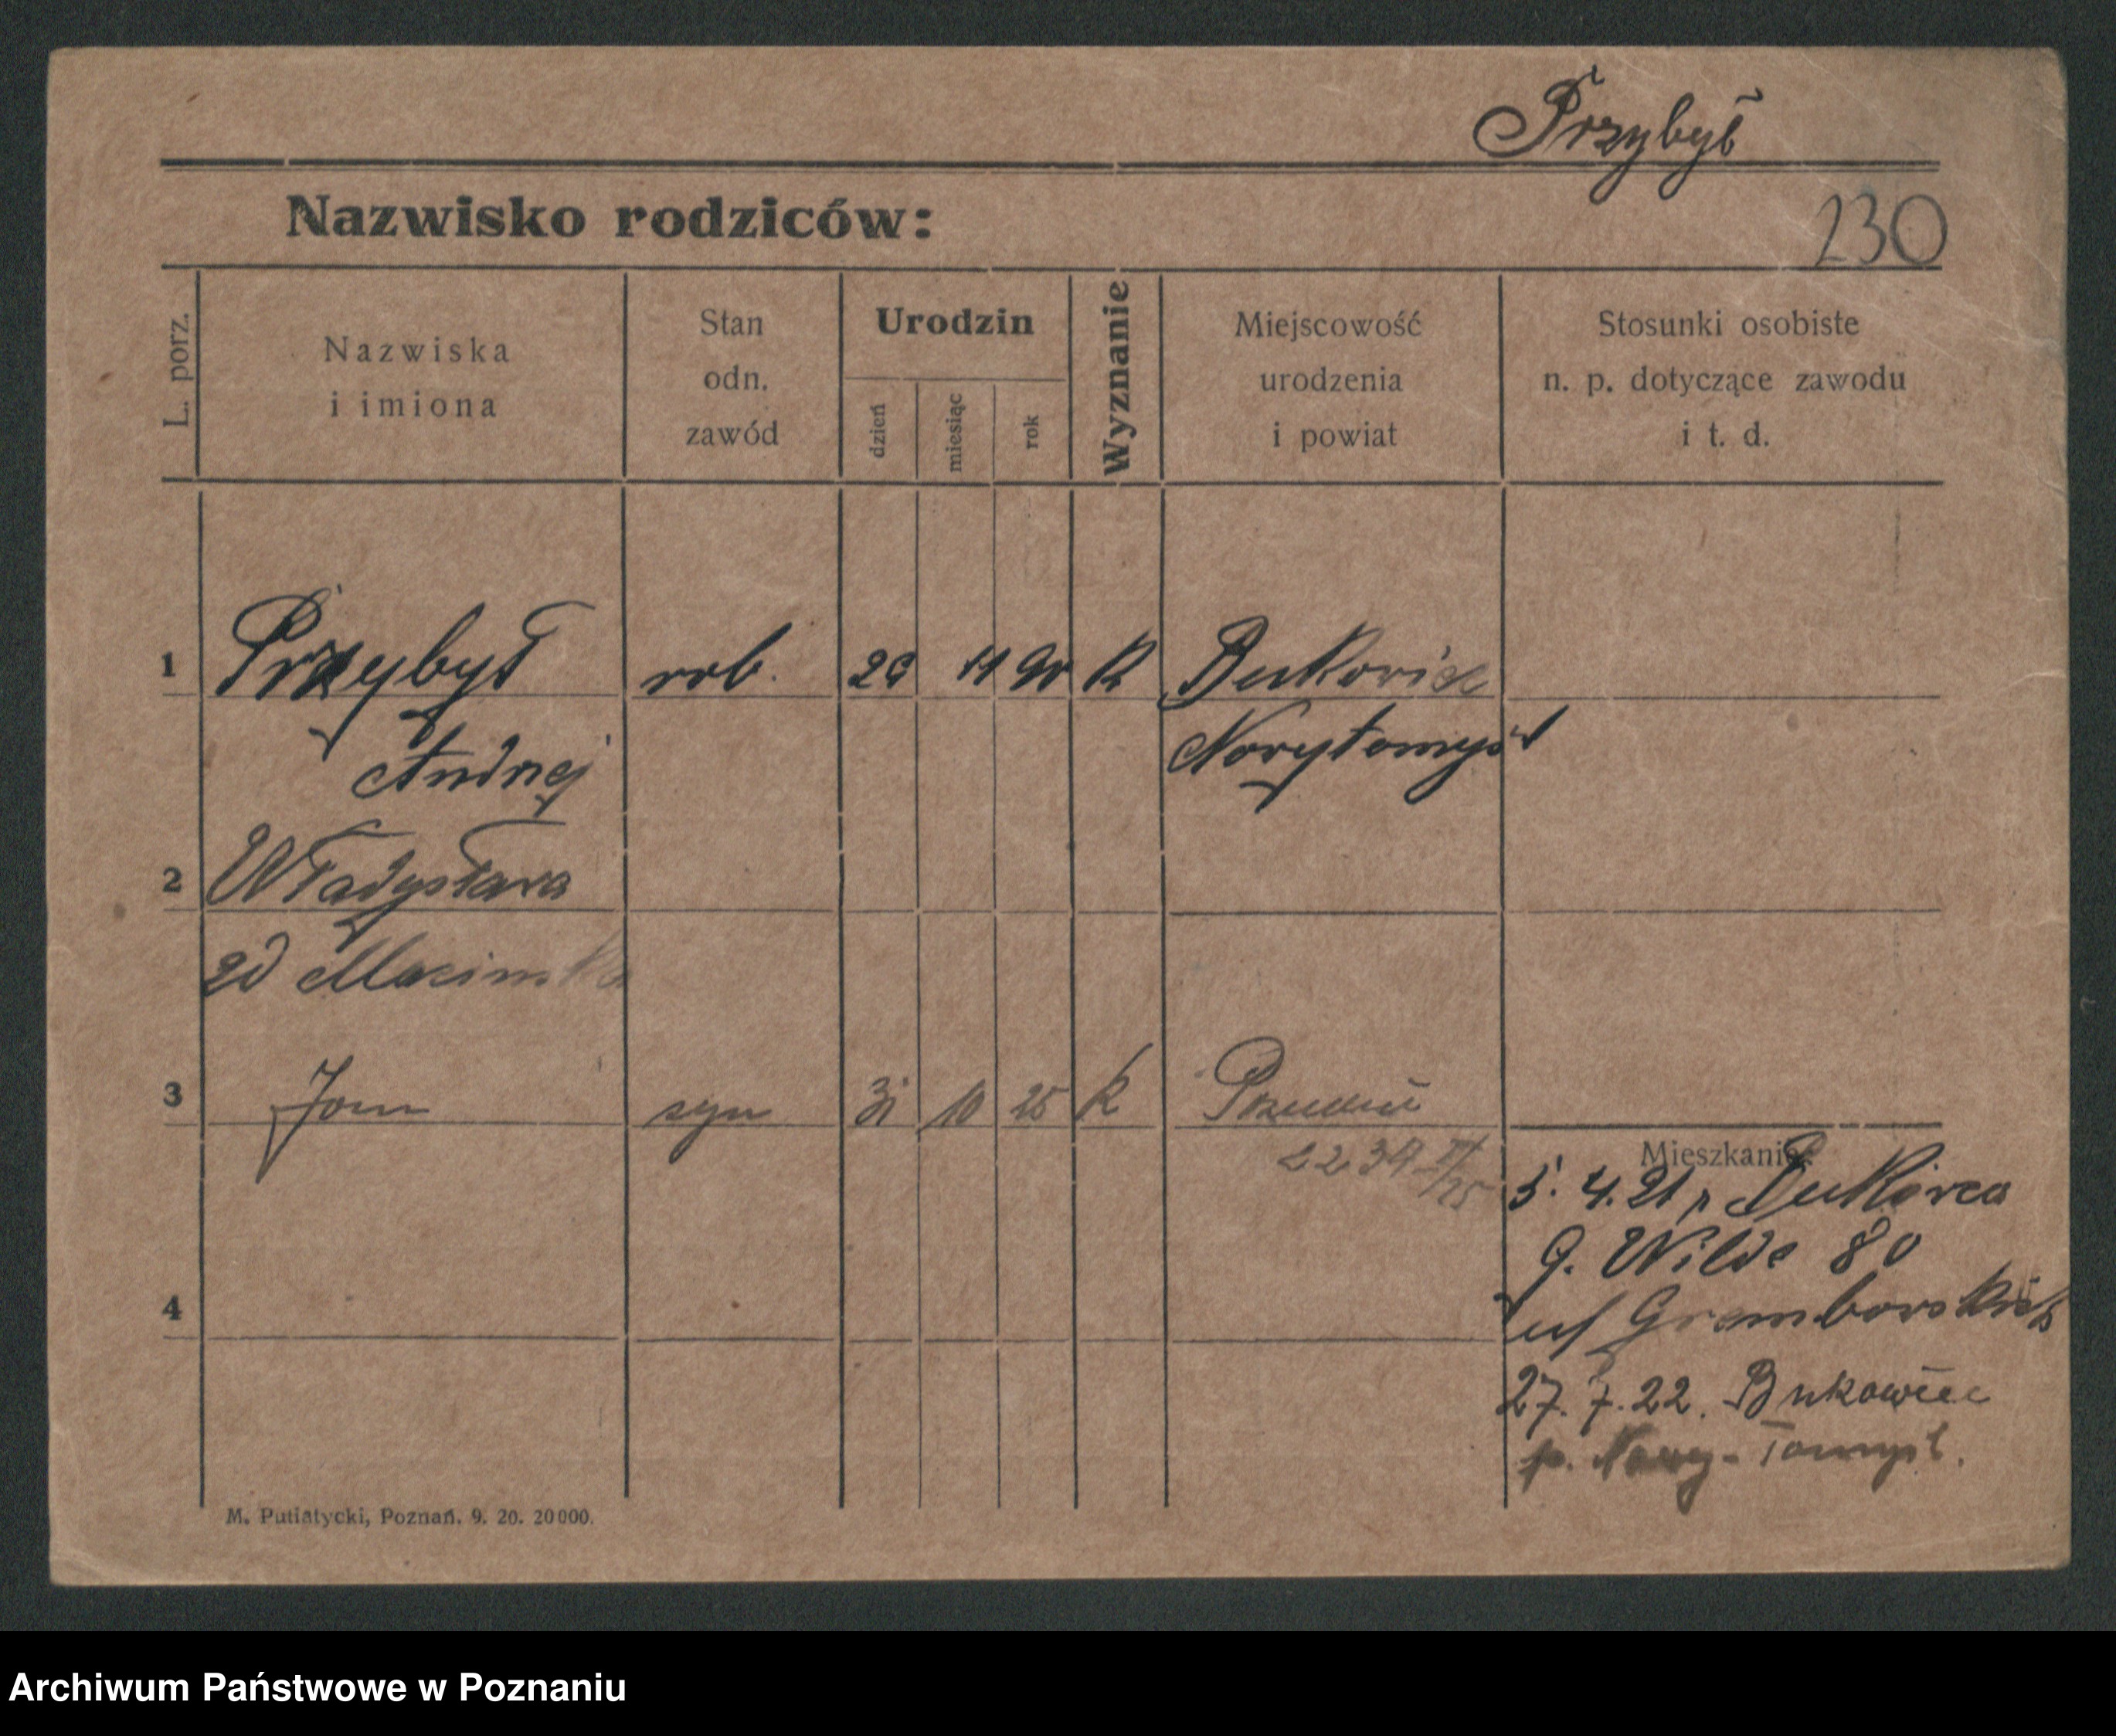 Przybył
Nazwisko rodziców:
230
L. porz.
Nazwiska
i imiona
Stan
odn.
zawód
Urodzin
dzień
miesiąc
rok
Wyznanie
Miejscowość
urodzenia
i powiat
Stosunki osobiste
n. p. dotyczące zawodu
i t. d.
1 Przybył rob. 11 90 K
Andrzej Nowytomysł
2 Władysława
3 syn 31 10 25 K Poznań
Mieszkanie
5. 4. 21
G. Wilda 80
4
27. 7. 22. Bukowiec
p. Nowy-Tomyśl.
M. Putiatycki, Poznań. 9. 20. 20000.
Archiwum Państwowe w Poznaniu